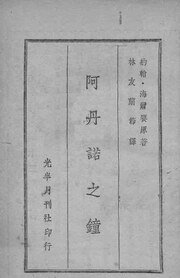 約翰・海爾賽原著
林友蘭譯
阿丹諾之鐘
光半月刊社印行